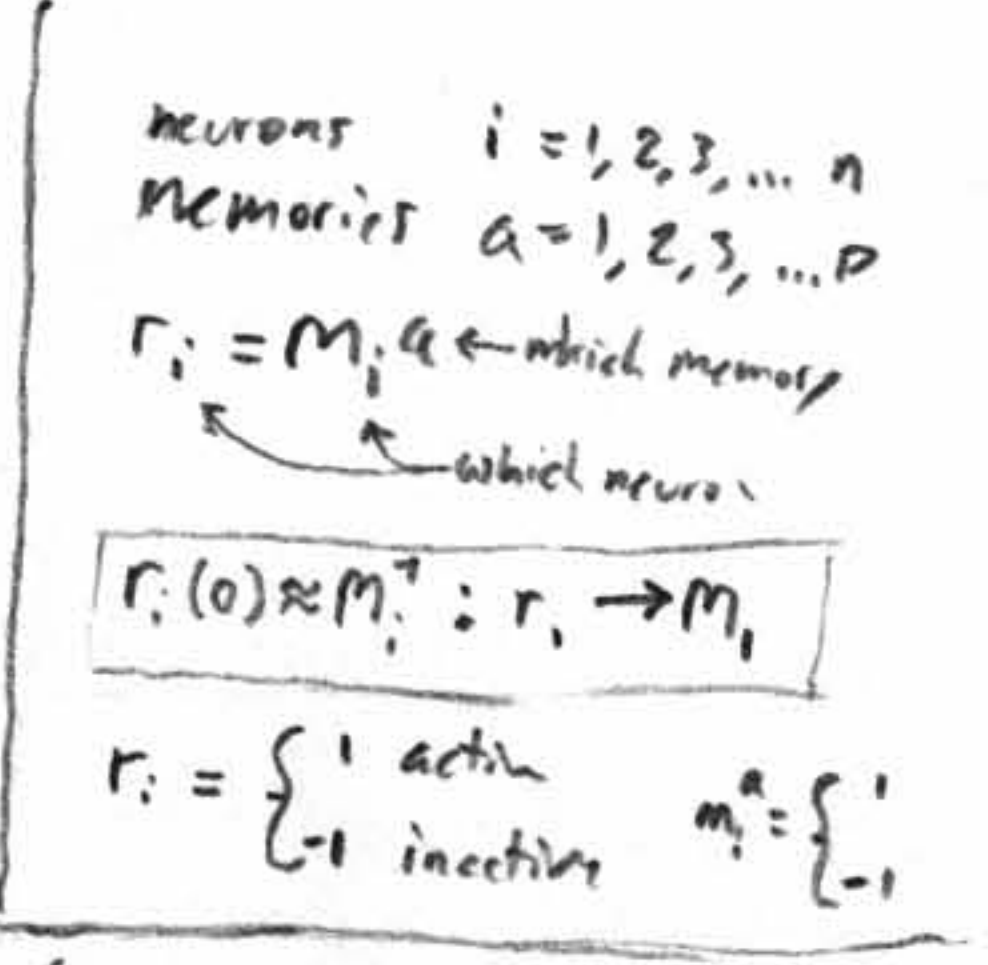 neurons i = 1, 2, 3, ... n
memories a = 1, 2, 3, ... p
rᵢ = Mᵢᵃ ← which memory
which neuro
rᵢ(0) ≈ Mᵢ¹ : rᵢ → M₁
rᵢ = { 1 active
-1 inactive
mᵢᵃ = { 1
-1